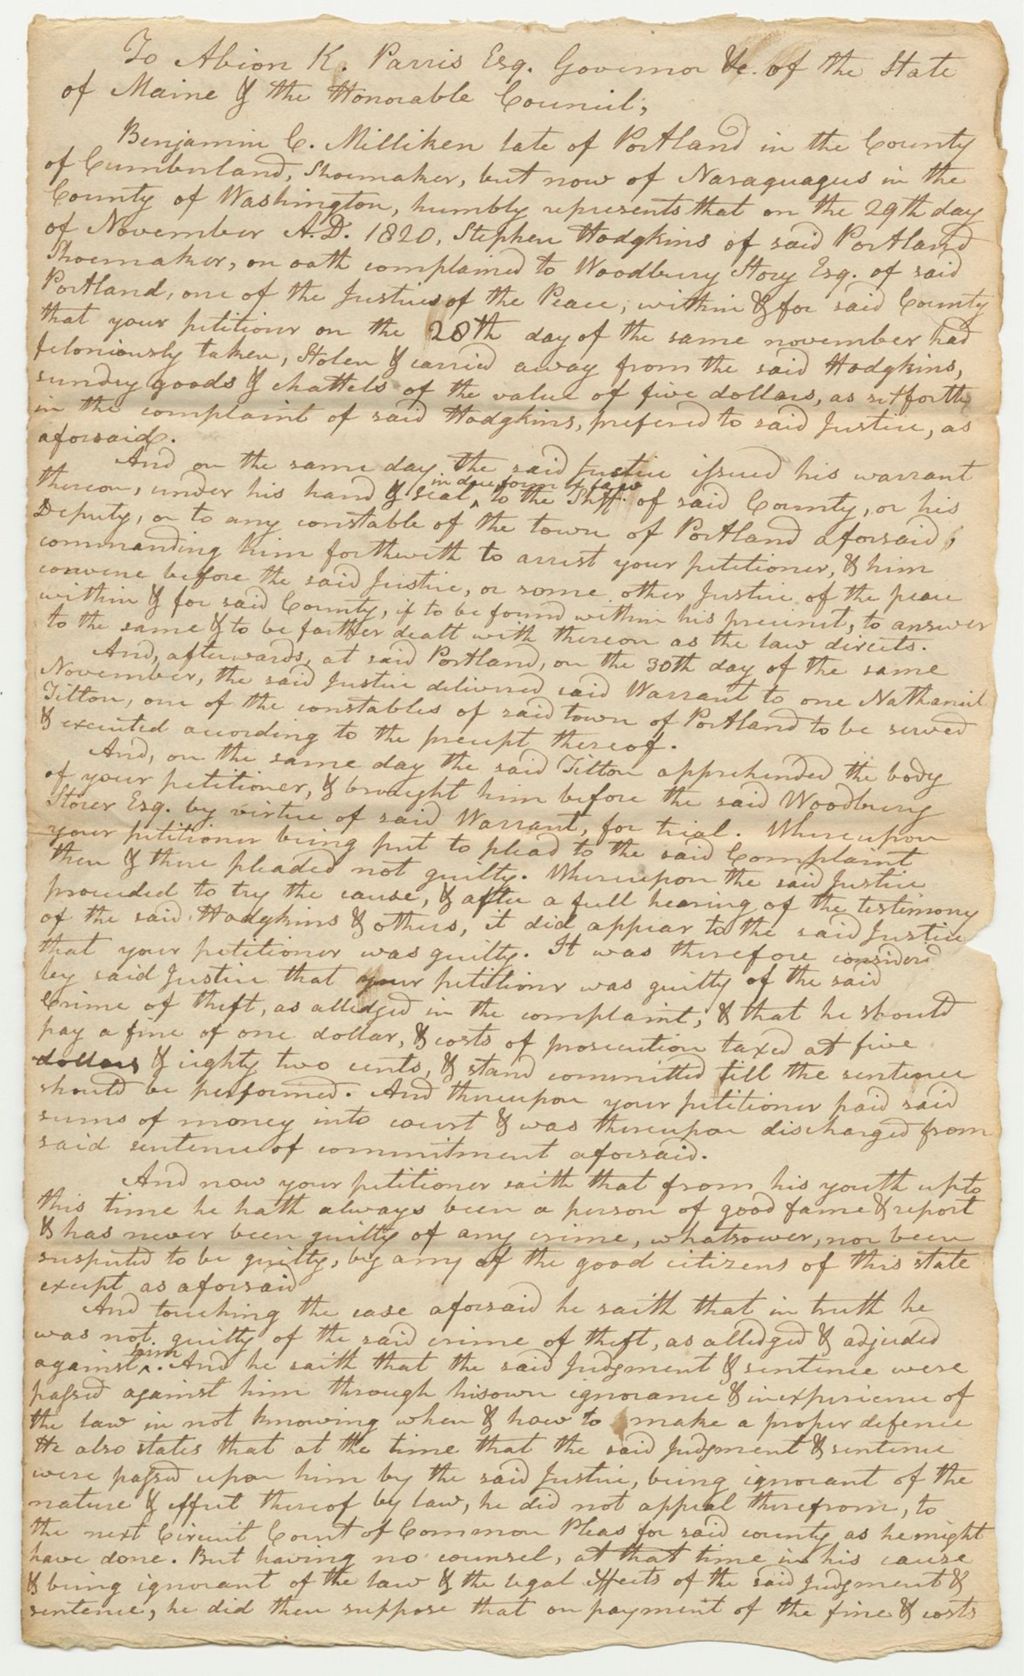 To Abion K. Parris Esq. Governor &c. of the State
of Maine & the Honorable Council;
Benjamin C. Milliken late of Portland in the County
of Cumberland, Shoemaker, but now of Naraguagus in the
County of Washington, humbly represents that on the 29th day
of November A.D. 1820, Stephen Hodgkins of said Portland
Shoemaker, on oath complained to Woodbury Story Esq. of said
Portland, one of the Justices of the Peace, within & for said County
that your petitioner on the 28th day of the same november had
feloniously taken, Stolen & carried away from the said Hodgkins,
sundry goods & chattels of the value of five dollars, as set forth
in the complaint of said Hodgkins, prefered to said Justice, as
aforesaid.
And on the same day the said Justice issued his warrant
in due form of law
thereon, under his hand & seal, ^ to the Shff. of said County, or his
Deputy, or to any constable of the town of Portland aforsaid,
commanding him forthwith to arrest your petitioner, & him
convene before the said Justice, or some other Justice of the peace
within & for said County, if to be found within his precinct, to answer
to the same & to be farther dealt with thereon as the law directs.
And, afterwards, at said Portland, on the 30th day of the same
November, the said Justice delivered said Warrant to one Nathaniel
Tilton, one of the constables of said town of Portland to be served
& executed acording to the precept thereof.
And, on the same day the said Tilton apprehended the body
of your petitioner, & brought him before the said Woodbury
Storer Esq. by virtue of said Warrant, for trial. Whereupon
your petitioner being put to plead to the said Complaint
then & there pleaded not guilty. Whereupon the said Justice
proceeded to try the cause, & after a full hearing of the testimony
of the said Hodgkins & others, it did appear to the said Justice
that your petitioner was guilty. It was therefore considered
by said Justice that your petitioner was guilty of the said
Crime of theft, as alledged in the complaint, & that he should
pay a fine of one dollar, & costs of prosecution taxed at five
dollars & eighty two cents, & stand committed till the sentence
should be performed. And thereupon your petitioner paid said
sums of money into court & was thereupon discharged from
said sentence of commitment aforsaid.
And now your petitioner saith that from his youth up to
this time he hath always been a person of good fame & report
& has never been guilty of any crime, whatsoever, nor been
suspected to be guilty, by any of the good citizens of this state
except as aforsaid
And touching the case aforsaid he saith that in truth he
was not guilty of the said crime of theft, as alledged & adjuded
him
against ^. And he saith that the said Judgment & sentence were
passed against him through his own ignorance & inexperience of
the law in not knowing when & how to make a proper defence
He also states that at the time that the said Judgment & sentence
were passed upon him by the said Justice, being ignorant of the
nature & effect thereof by law, he did not appeal therefrom, to
the next Circuit Court of Common Pleas for said county as he might
have done. But having no counsel, at that time in his cause
& being ignorant of the law & the legal effects of the said Judgment &
sentence, he did then suppose that on payment of the fine & costs